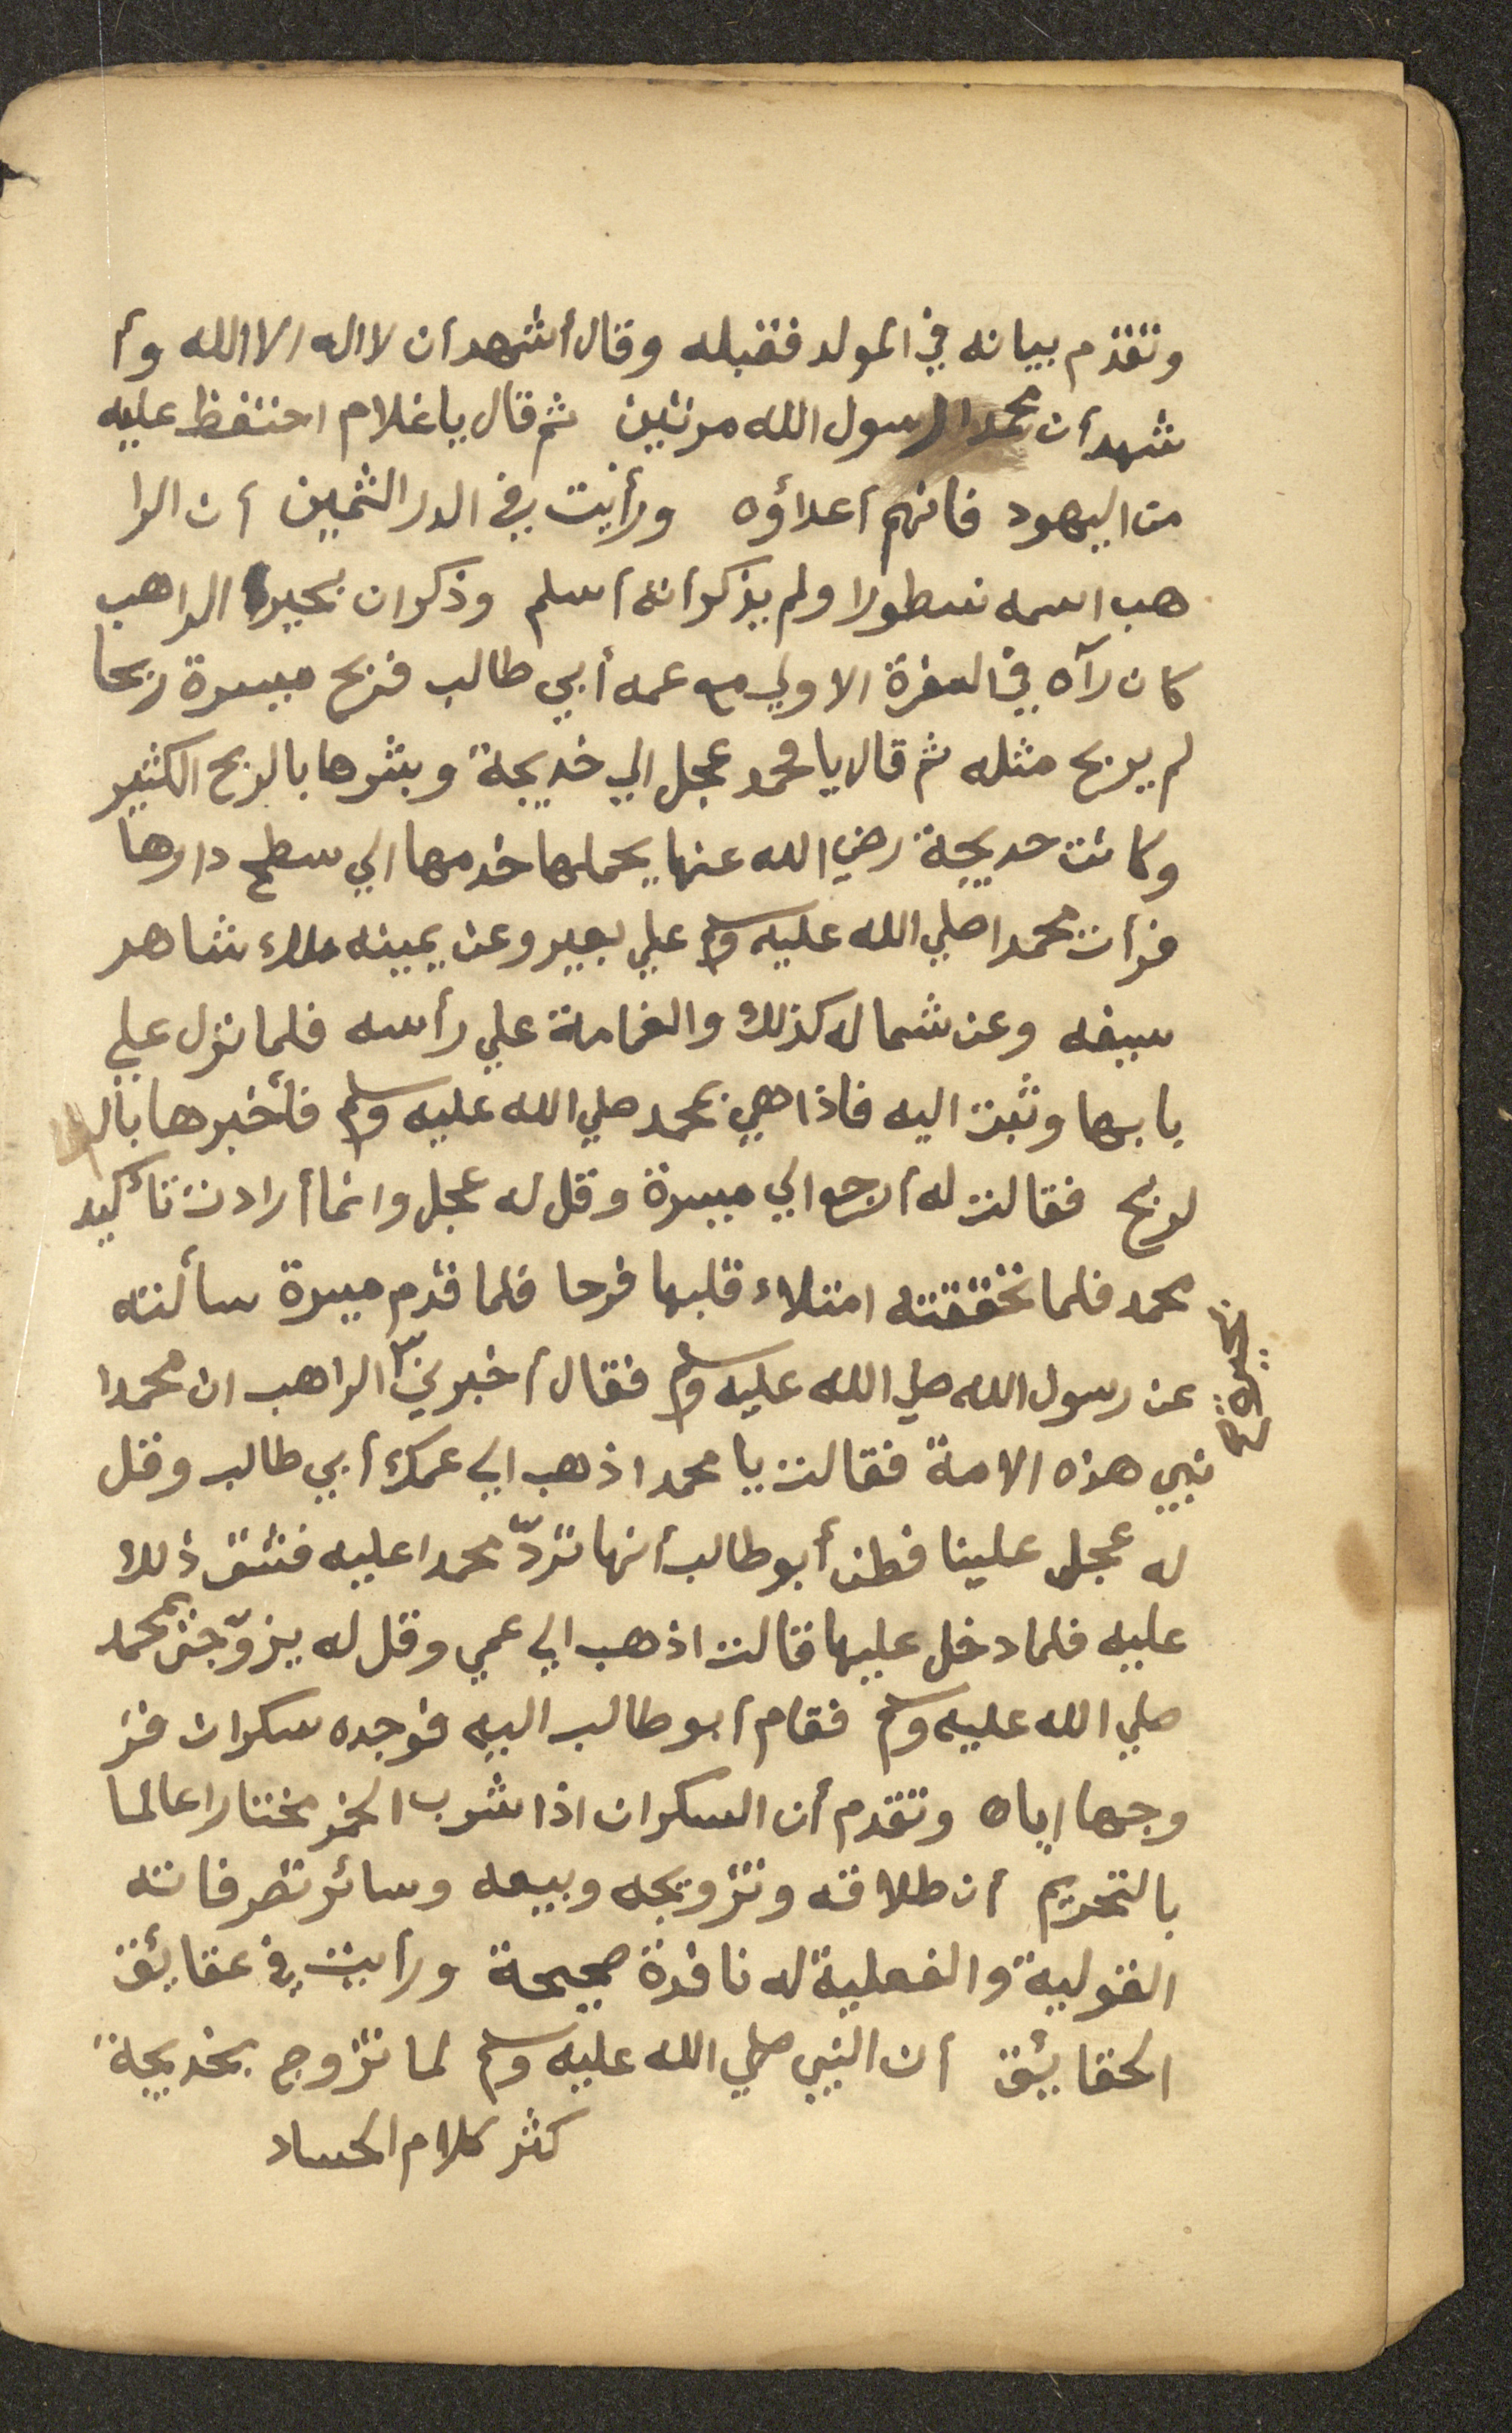 وتقدم بيانه في المولد فقبله وقال أشهد أن لا اله الا الله وأ
شهد أن محمدا رسول الله مرتين ثم قال يا غلام احتفظ عليه
من اليهود فانهم أعداؤه ورأيت في الدر الثمين أن الرا
هب اسمه نسطورا ولم يذكر أنه أسلم وذكر ان بحيرا الراهب
كان رآه في السفرة الاولي مع عمه أبي طالب فربح ميسرة ربحا
لم يربح مثله ثم قال يا محمد عجل الي خديجة وبشرها بالربح الكثير
وكانت خديجة رضي الله عنها يحملها خدمها الي سطح دارها
فرأت محمدا صلي الله عليه وسلم علي بعير وعن يمينه ملاء شاهر
سيفه وعن شماله كذلك والغمامة علي رأسه فلما نزل علي
بابها وثبت اليه فاذا هي بمحمد صلي الله عليه وسلم فأخبرها بال
لربح فقالت له أرجع الي ميسرة وقل له عجل وانما أرادت تأكيد
محمد فلما تحققته امتلاء قلبها فرحا فلما قدم ميسرة سألته
عن رسول الله صلي الله عليه وسلم فقال أخبرني الراهب ان محمدا
نبي هذه الامة فقالت يا محمد اذهب الي عمك أبي طالب وقل
له عجل علينا فظن أبو طالب أنها تردّ محمدا عليه فشق ذلك
عليه فلما دخل عليها قالت اذهب الي عمي وقل له يزوّجني بمحمد
صلي الله عليه وسلم فقام أبو طالب اليه فوجده سكران فز
وجها اياه وتقدم أن السكران اذا شرب الخمر مختارا عالما
بالتحريم أن طلاقه وتزويجه وبيعه وسائر تصرفاته
القولية والفعلية له نافذة صحيحة ورأيت في عقائق
الحقائق أن النبي صلي الله عليه وسلم لما تزوج بخديجة
كثر كلام الحساد